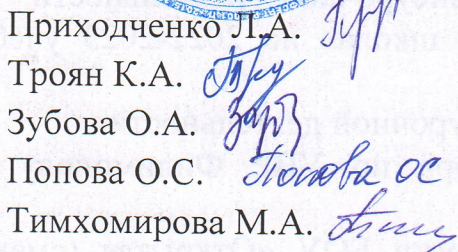 Приходченко Л.А.
Троян К.А.
Зубова О.А.
Попова О.С. Попова ОС
Тимхомирова М.А.